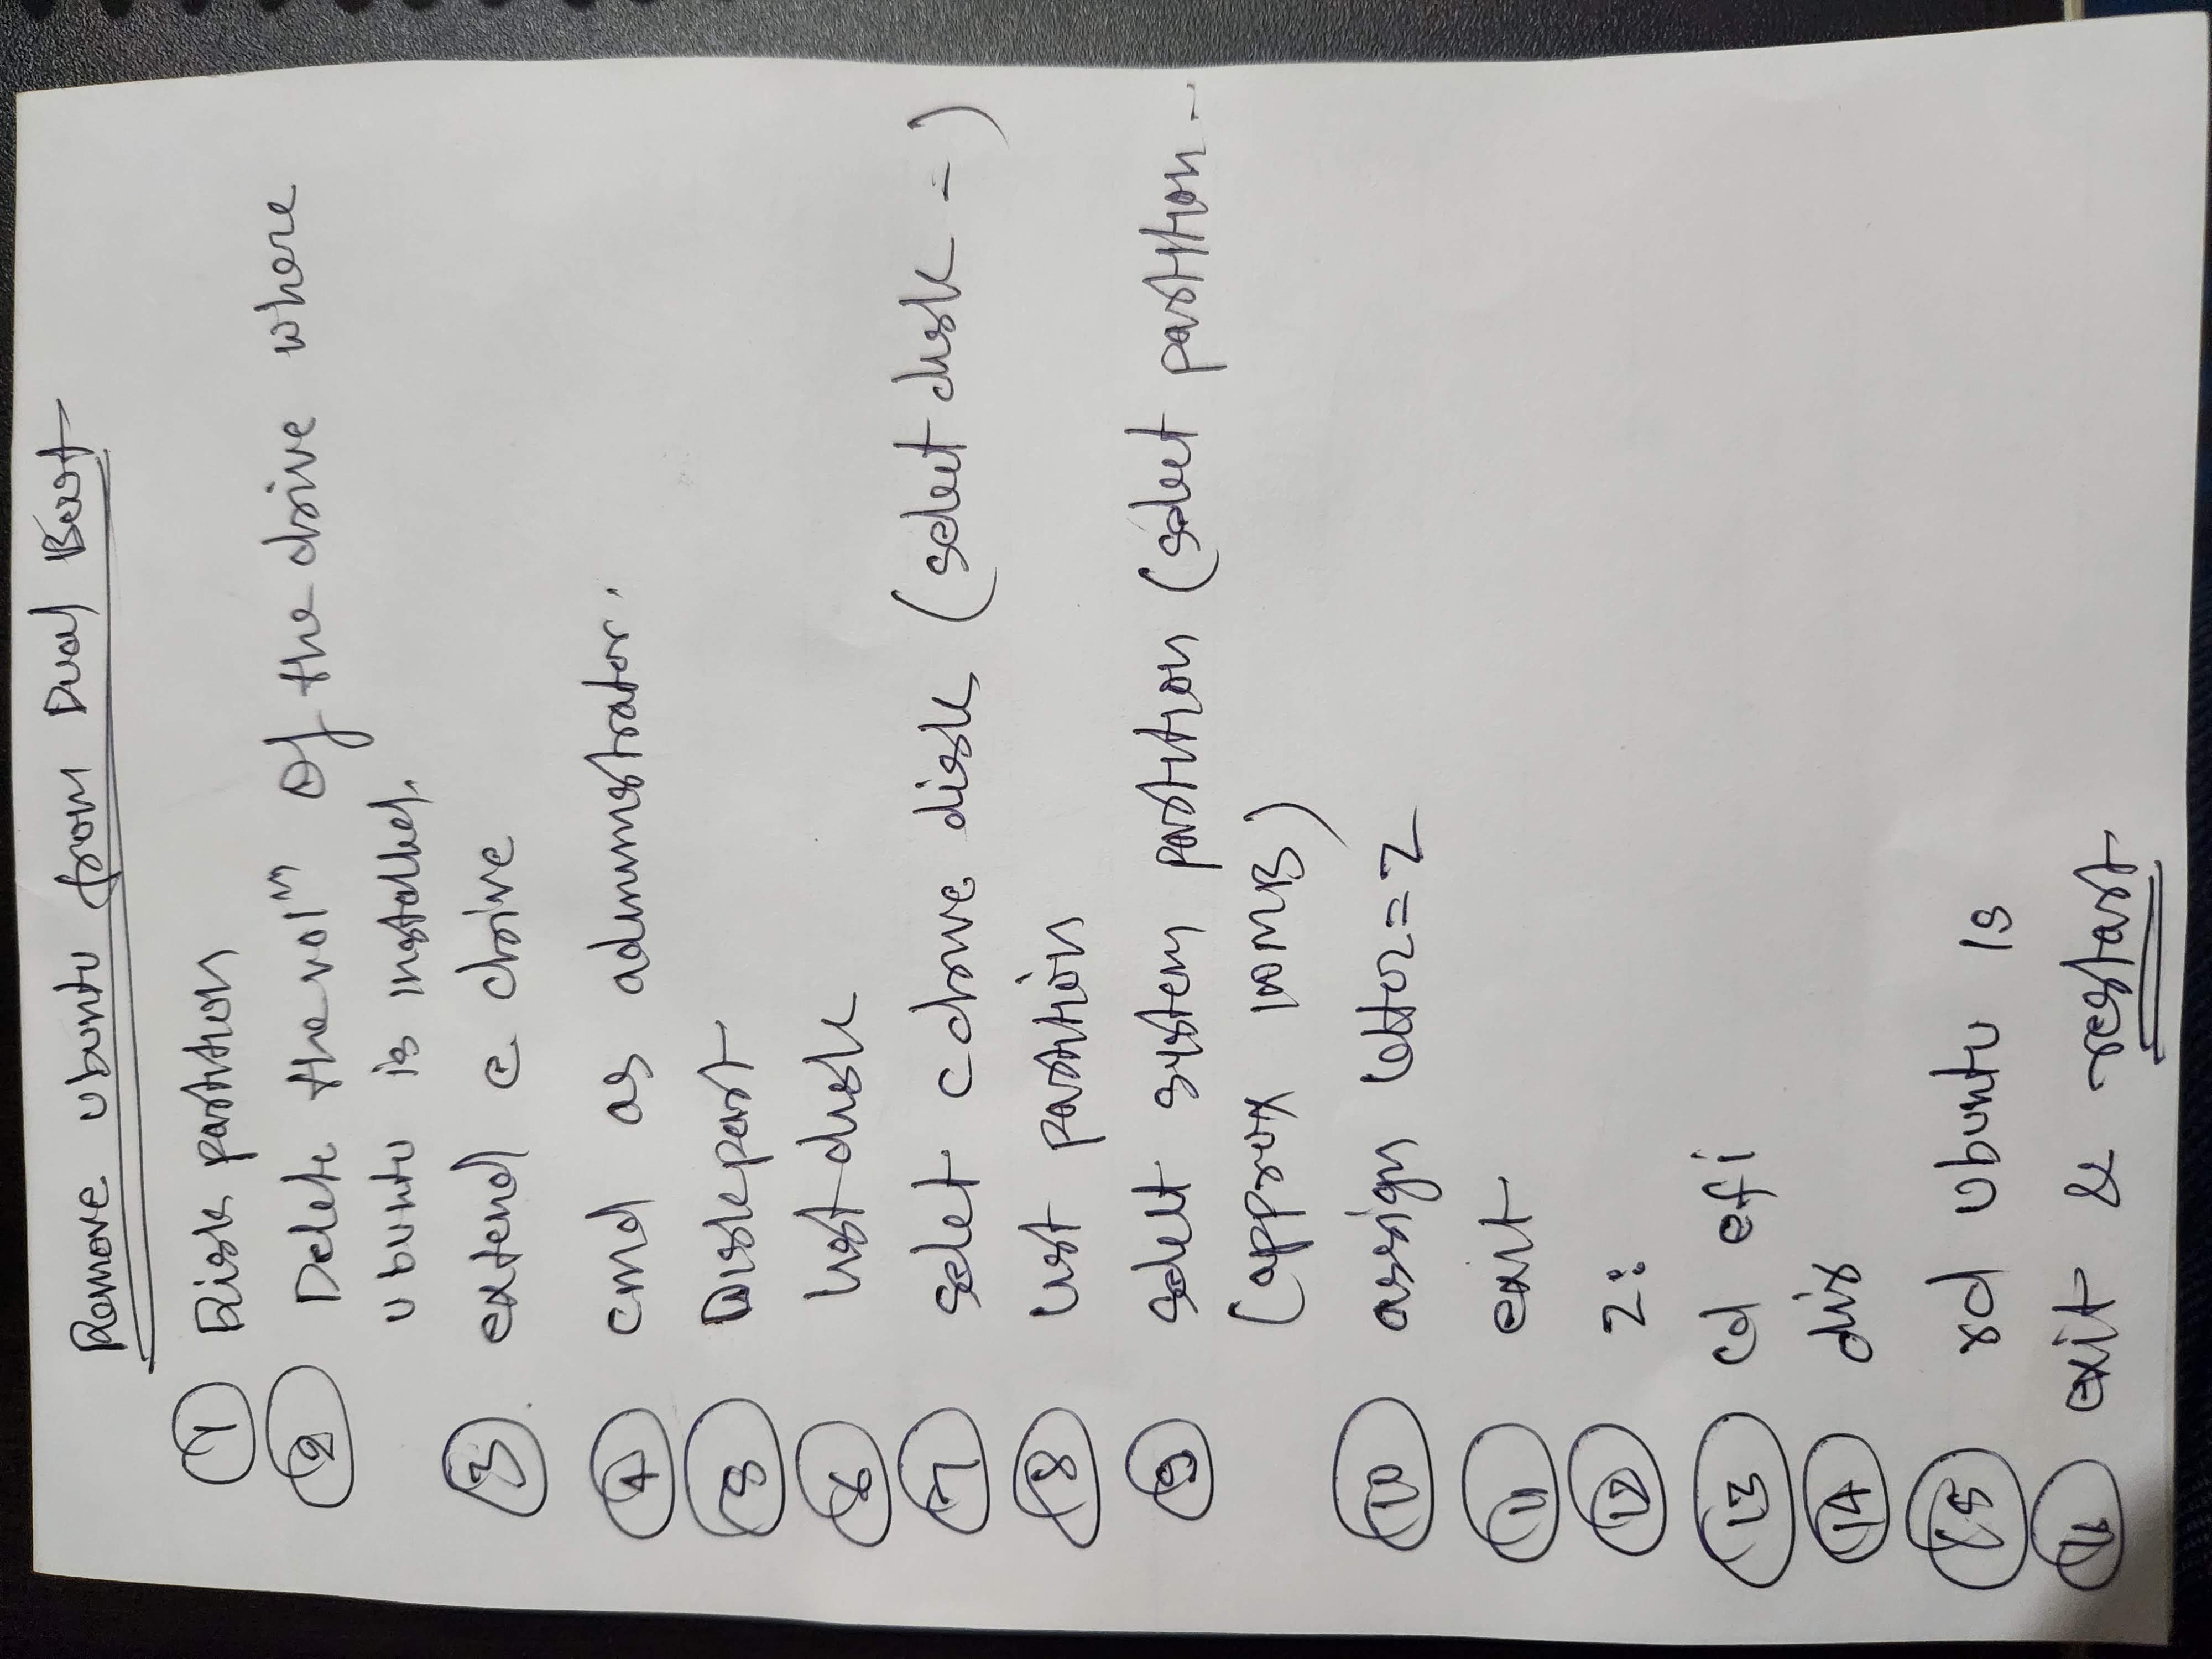 Remove Ubuntu from Dual Boot
1 Disk partition
2 Delete the volm of the drive where
ubuntu is installed.
3. extend c drive
4 cmd as administrator.
5 Diskpart
6 list disk
7 selet c drive disk (select disk - )
8 list partition
9 select system partition (select partition -
(approx 100MB)
10 assign letter=z
11 exit
12 z:
13 cd efi
14 dir
15 rd ubuntu /s
16 exit & restart